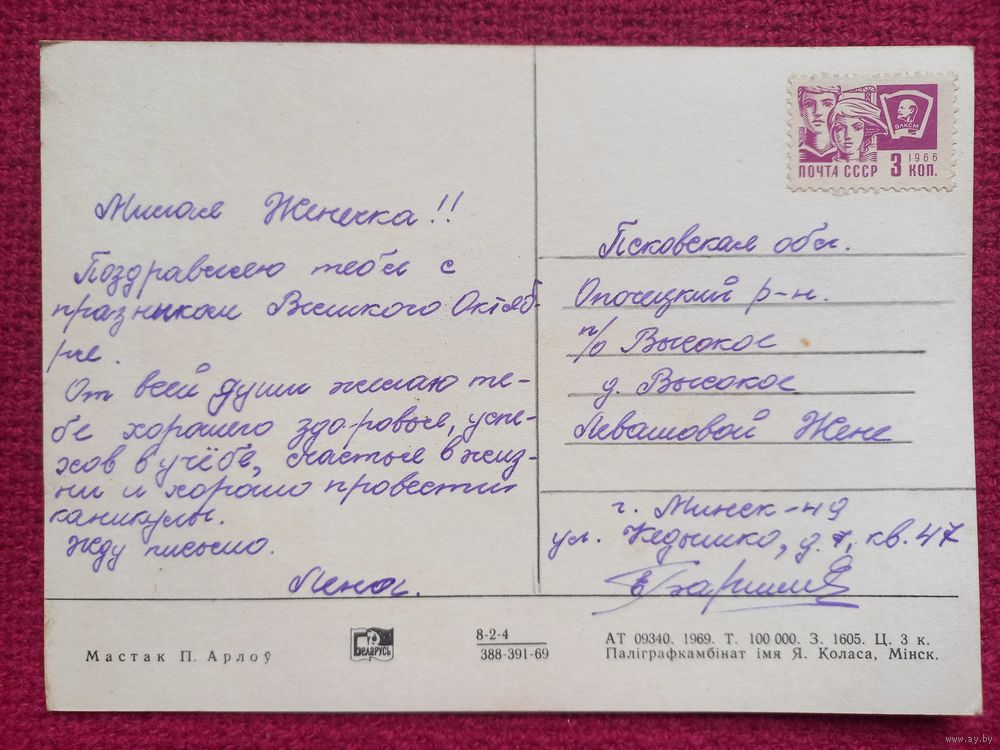 Милая Женечка!!
Поздравляю тебя с
праздником Великого Октяб-
ря.
От всей души желаю те-
бе хорошего здоровья, успе-
хов в учёбе, счастья в жиз-
ни и хорошо провести
каникулы.
Жду письмо.
Лена.
ВЛКСМ
1966
ПОЧТА СССР 3 КОП.
Псковская обл.
Опочецкий р-н.
п/о Высокое
д. Высокое
Левашовой Жене
г. Минск-49
ул. Кедышко, д. 7, кв. 47
Мастак П. Арлоў
Беларусь
8-2-4
388-391-69
АТ 09340. 1969. Т. 100 000. З. 1605. Ц. 3 к.
Паліграфкамбінат імя Я. Коласа, Мінск.
www.ay.by